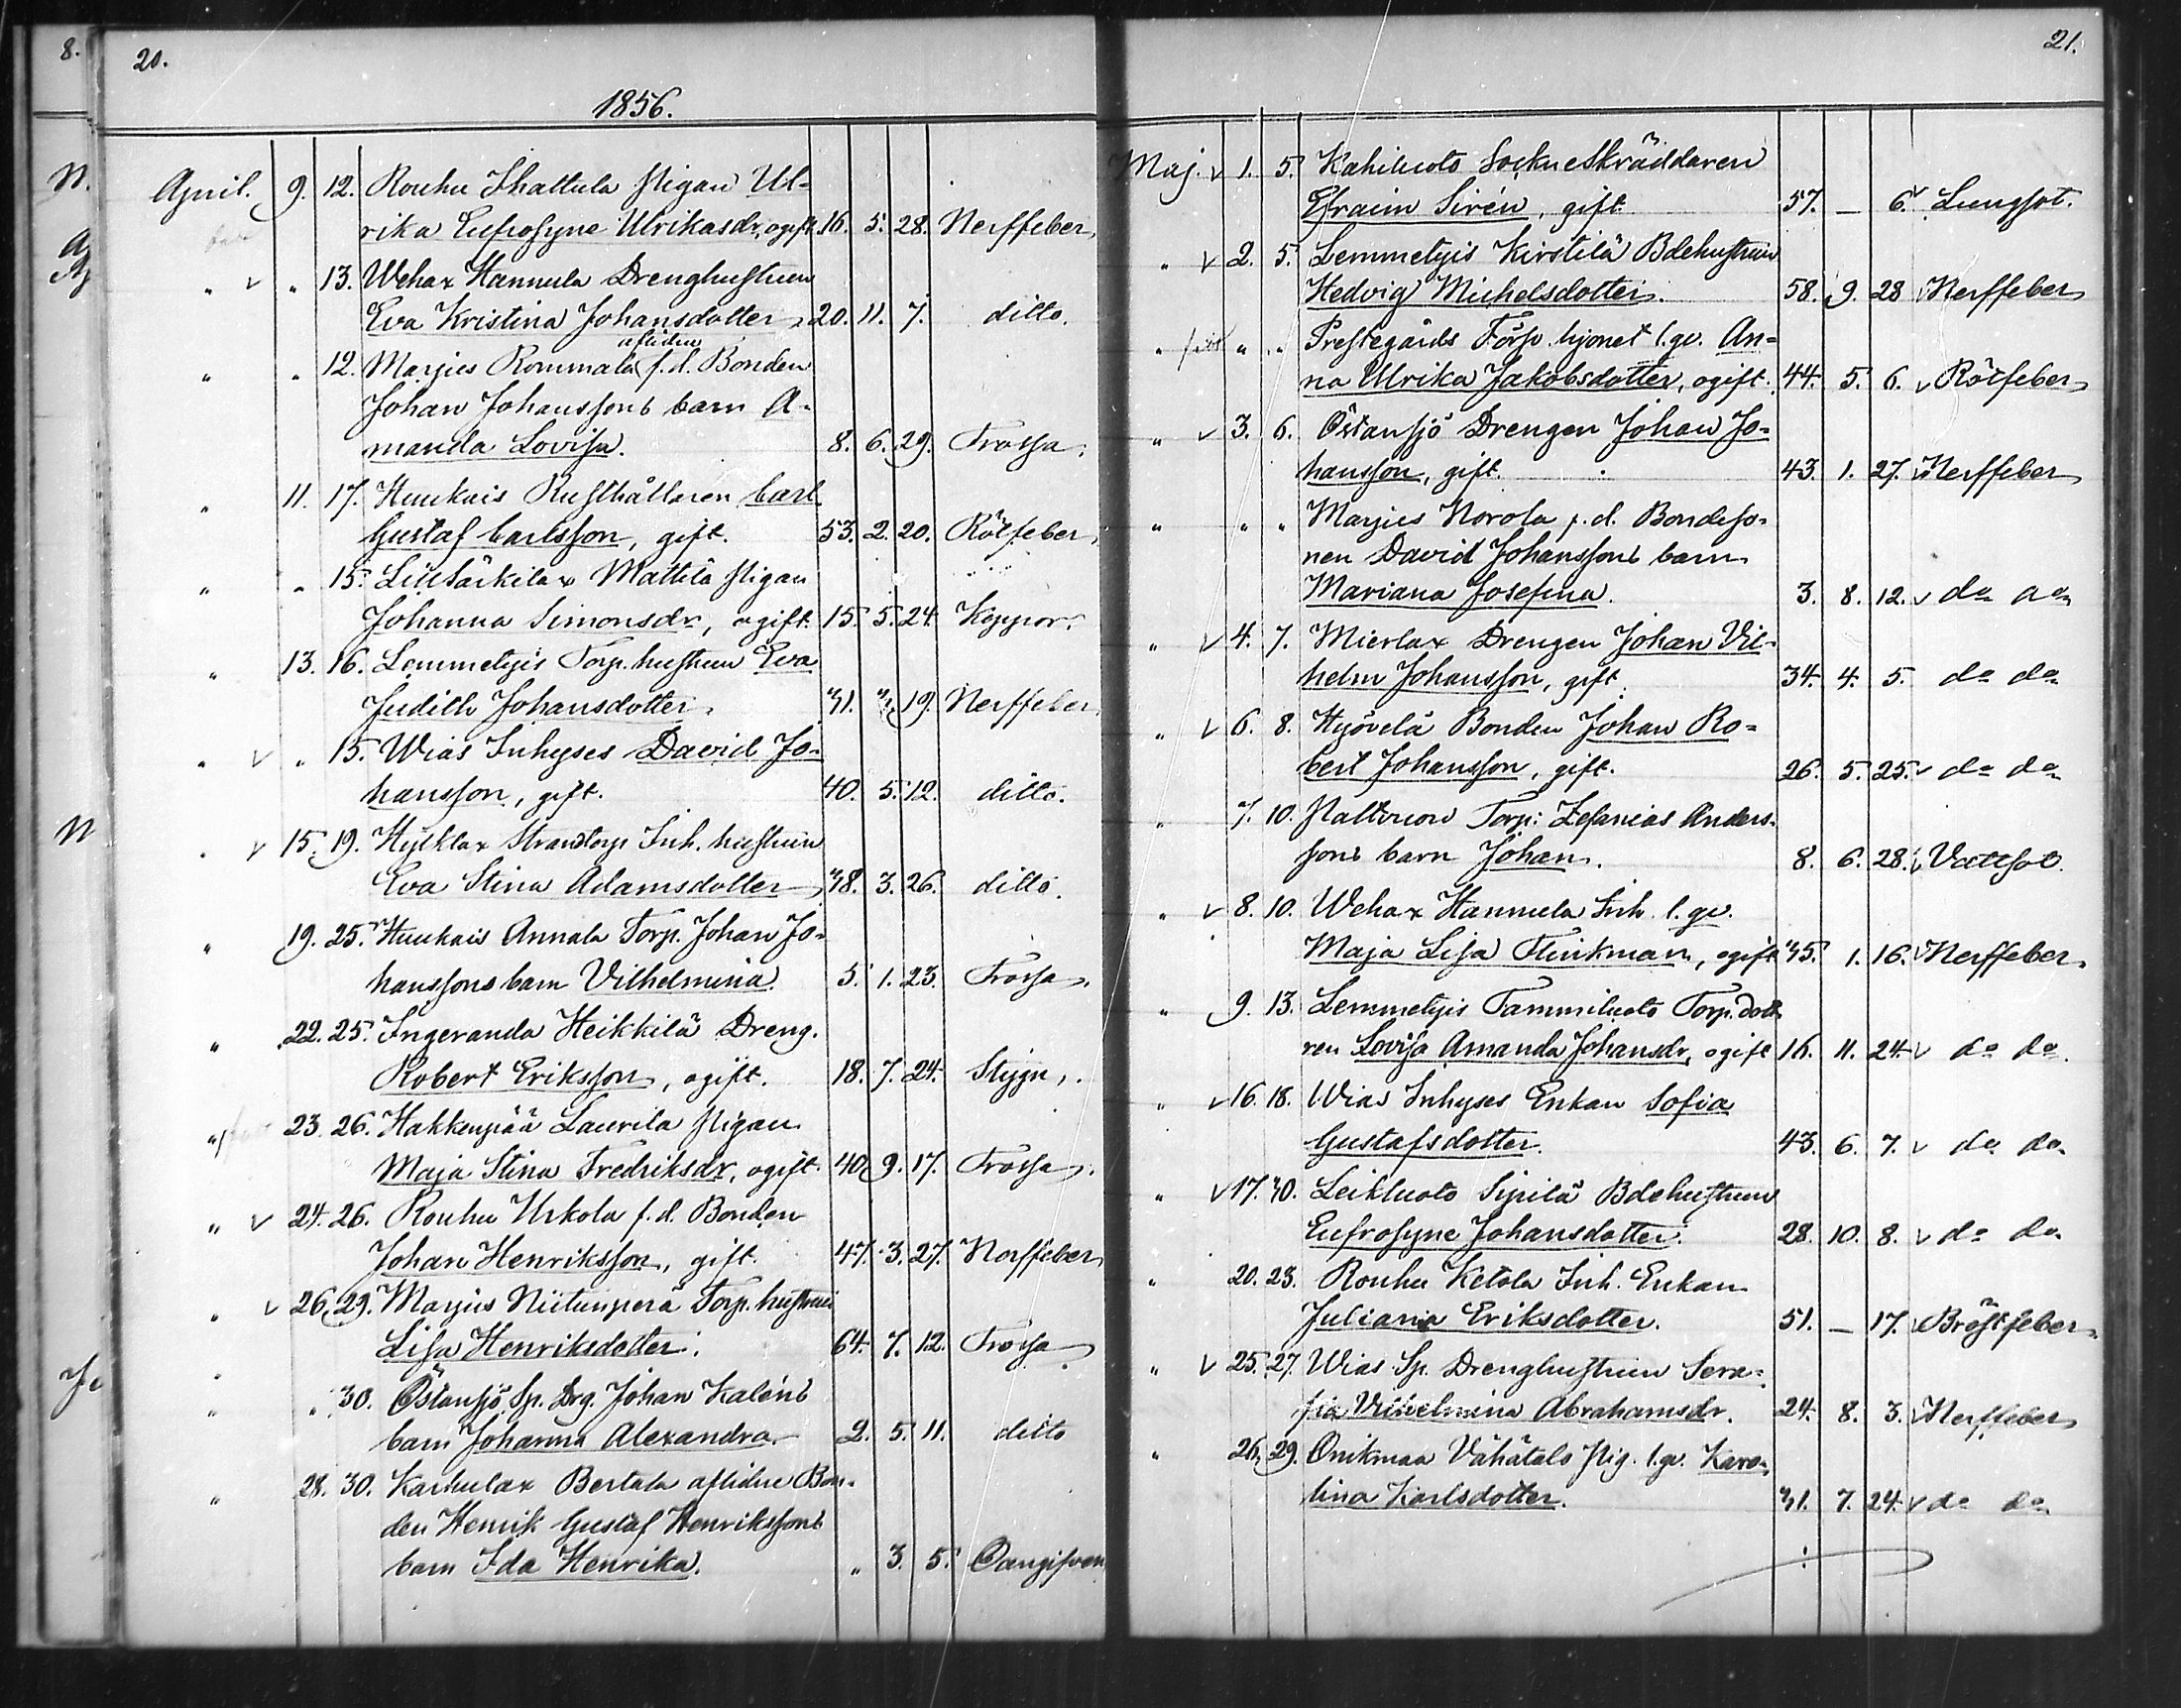 8.
20.
1856.
April. 9. 12. Rouhu Ihattula Pigan Ul-
rika Eufrosyne Ulrikasdr, ogift. 16. 5. 28. Nerffeber
" v " 13. Wehax Hannula Drenghustrun
Eva Kristina Johansdotter 20. 11. 7. ditto.
afliden
" " 12. Marjies Rommala f.d. Bonden
Johan Johanssons barn A-
manda Lovisa. 8. 6. 29. Frossa.
" 11. 17. Huukais Rusthållaren Carl
Gustaf Carlsson, gift. 53. 2. 20. Rötfeber
" " 15. Mattila Pigan
Johanna Simonsdr, ogift 15. 5. 24. Koppor.
" 13. 16. Lemmetyis Torp. hustrun Eva
Judith Johansdotter. 31. 3. 19. Nerffeber
" v " 15. Wias Inhyses David Jo-
hansson, gift. 40. 5. 12. ditto.
" v 15. 19. Strandtorp Inh. hustrun
Eva Stina Adamsdotter 38. 3. 26. ditto.
" 19. 25. Huukais Annala Torp. Johan Jo-
hanssons barn Vilhelmina. 5. 1. 23. Frossa.
" 22. 25. Ingeranda Heikkilä Dreng.
Robert Eriksson, ogift. 18. 7. 24. Stygn.
" 23. 26. Hakkenpää Laurila Pigan
Maja Stina Fredriksdr, ogift. 40. 9. 17. Frossa.
" v 24. 26. Rouhu Urkola f.d. Bonden
Johan Henriksson, gift. 47. 3. 27. Nerffeber
" v 26. 29. Marjies Niitunperä Torp. hustrun
Lisa Henriksdotter. 64. 7. 12. Frossa
" " 30. Östansjö Sp. Drg. Johan Kaléns
barn Johanna Alexandra. 2. 5. 11. ditto
" 28. 30. Karhulax Bertala aflidne Bon-
den Henrik Gustaf Henrikssons
barn Ida Henrika. " 3. 5. Oangifven
21.
Maj. v 1. 5. Kahiluoto Sockneskräddaren
Efraim Sirén, gift 57. — 6. Lungsot.
" v 2. 5. Lemmetyis Kirstilä Bdehustrun
Hedvig Michelsdotter. 58. 9. 28 v Nerffeber
" " " Prestegårds Förp. hjonet l.qv. An-
na Ulrika Jakobsdotter, ogift. 44. 5. 6. v Rötfeber
" v 3. 6. Östansjö Drengen Johan Jo-
hansson, gift. 43. 1. 27. v Nerffeber
" " " Marjies Norola f.d. Bondeso-
nen David Johanssons barn
Mariana Josefina. 3. 8. 12. v do do
" v 4. 7. Mierlax Drengen Johan Vil-
helm Johansson, gift. 34. 4. 5. do do
" v 6. 8. Hyövelä Bonden Johan Ro-
bert Johansson, gift. 26. 5. 25. v do do
" 7. 10. Torp: Zefanias Anders-
sons barn Johan. 8. 6. 28. v Vattsot.
" v 8. 10. Wehax Hannula Inh. l.qv.
Maja Lisa Flinkman, ogift 35. 1. 16. v Nerffeber.
" 9. 13. Lemmetyis Tammiluoto Torp. dott
ren Lovisa Amanda Johansdr, ogift 16. 11. 24. v do do.
" v 16. 18. Wias Inhyses Enkan Sofia
Gustafsdotter. 43. 6. 7. v do do
" v 17. 30. Leikluoto Sipilä Bdehustrun
Eufrosyne Johansdotter. 28. 10. 8. v do do
" 20. 23. Rouhu Ketola Inh. Enkan
Juliana Eriksdotter. 51. — 17. v Bröstfeber.
" v 25. 27. Wias Sp. Drenghustrun Sera-
fia Vilhelmina Abrahamsdr. 24. 8. 3. v Nerffeber
" 26. 29. Onikmaa Vähätalo Pig. l.qv. Karo-
lina Karlsdotter. 31. 7. 24. v do do